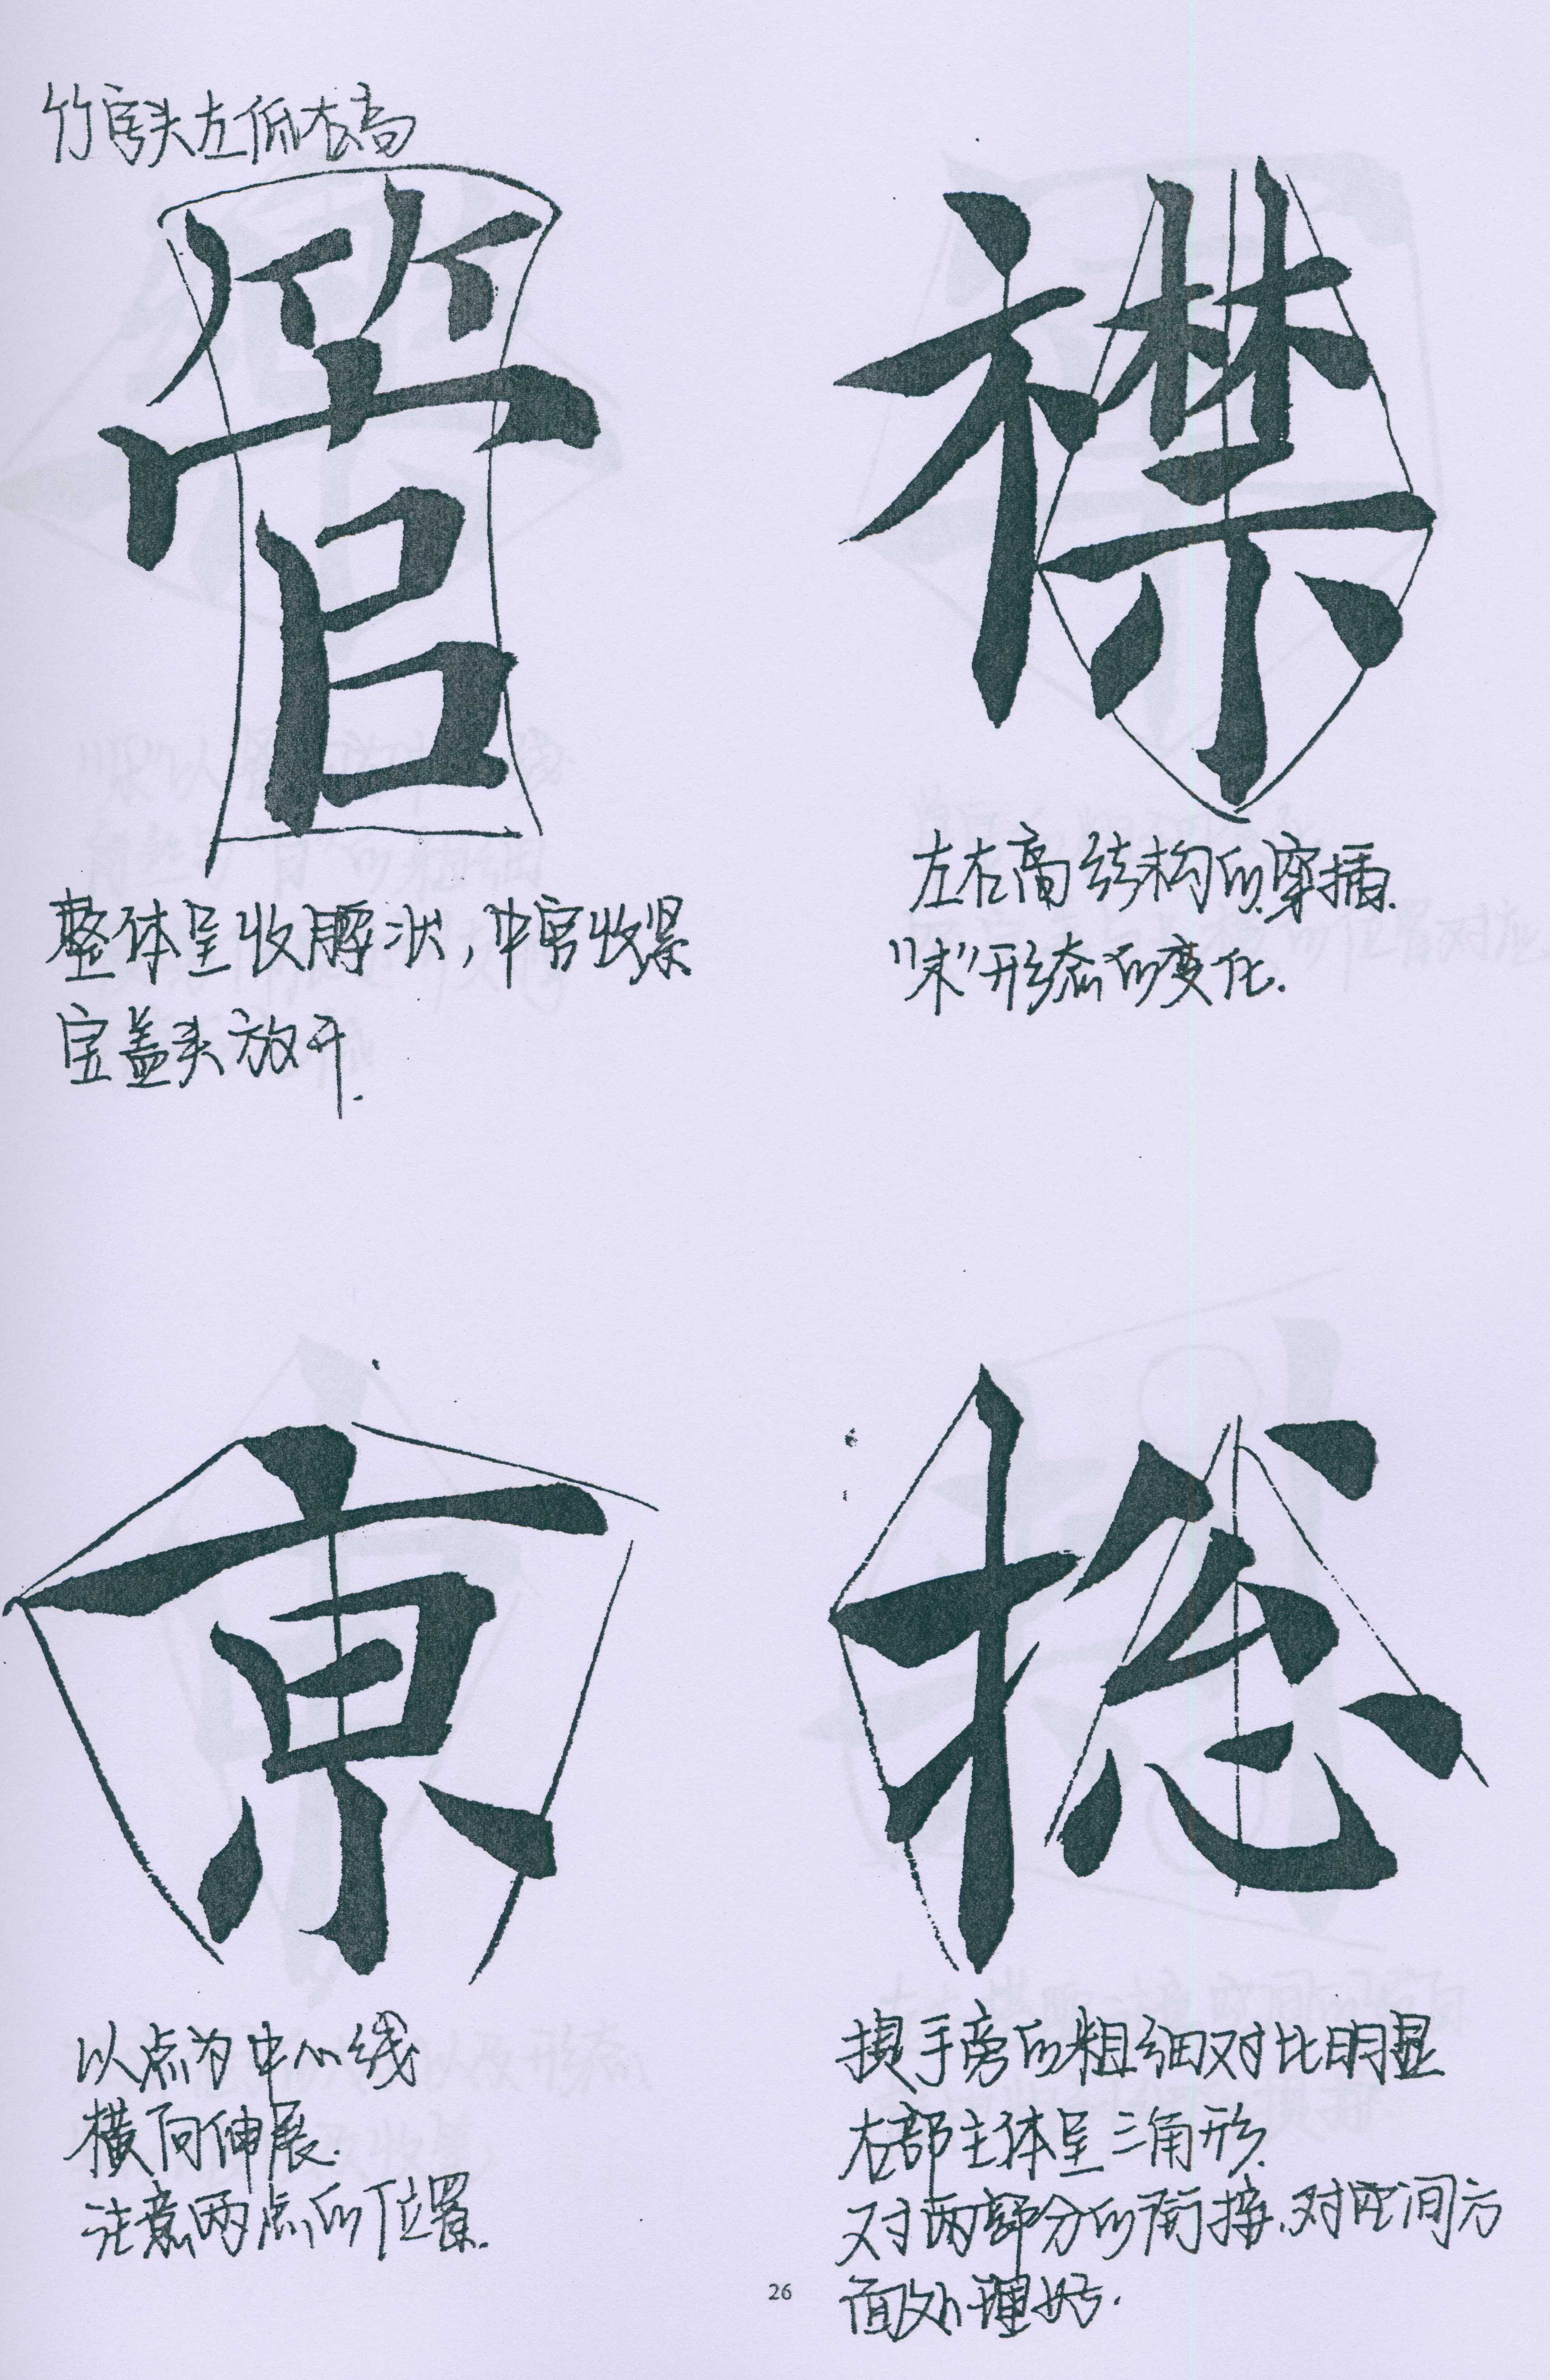 竹字头左低右高
管
整体呈收腰状,中宫收紧
宝盖头放开.
襟
左右高结构的穿插.
"木"形态的变化.
京
以点为中心线
横向伸展.
注意两点的位置.
揔
提手旁的粗细对比明显
右部主体呈三角形.
对两部分的衔接.对空间方
面处理好.
26